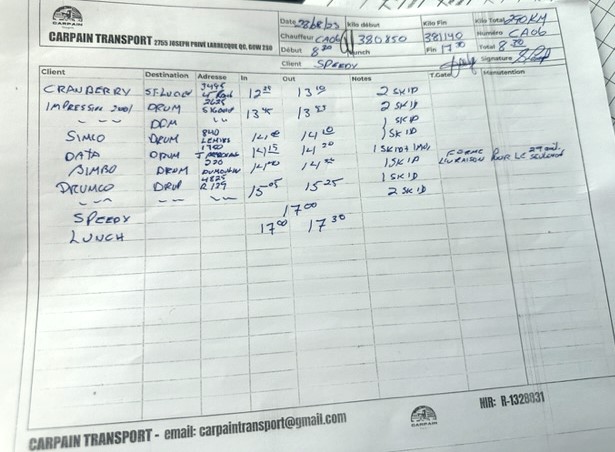 Date 28/8/23 Kilo début Kilo Fin Kilo Total 290 KM
CARPAIN
CARPAIN TRANSPORT 2755 JOSEPH PRIVÉ LABRECQUE QC. G0W 2S0
Chauffeur CA06 380850 381140 Numéro CA06
Début 8 30 Lunch Fin 17 30 Total 8 30
Client SPEEDY Signature
Client Destination Adresse In Out Notes T.Gate Manutention
CRANBERRY ST-LOUIS 3495 12 13 10 2 SKID
IMPRESSION 2001 DRUM 2635 13 45 13 2 SKID
DDM 1 SKID
SIMCO DRUM 840 14 14 10 1 SKID
DATA DRUM 1780 14 15 14 20 1 SKID FORME LIVRAISON POUR LE
BIMBO DRUM 220 14 14 1 SKID
DRUMCO DRUM 4825 R 139 15 05 15 25 1 SKID
2 SKID
SPEEDY 17 00
LUNCH 17 00 17 30
CARPAIN TRANSPORT - email: carpaintransport@gmail.com
CARPAIN
NIR: R-1328831